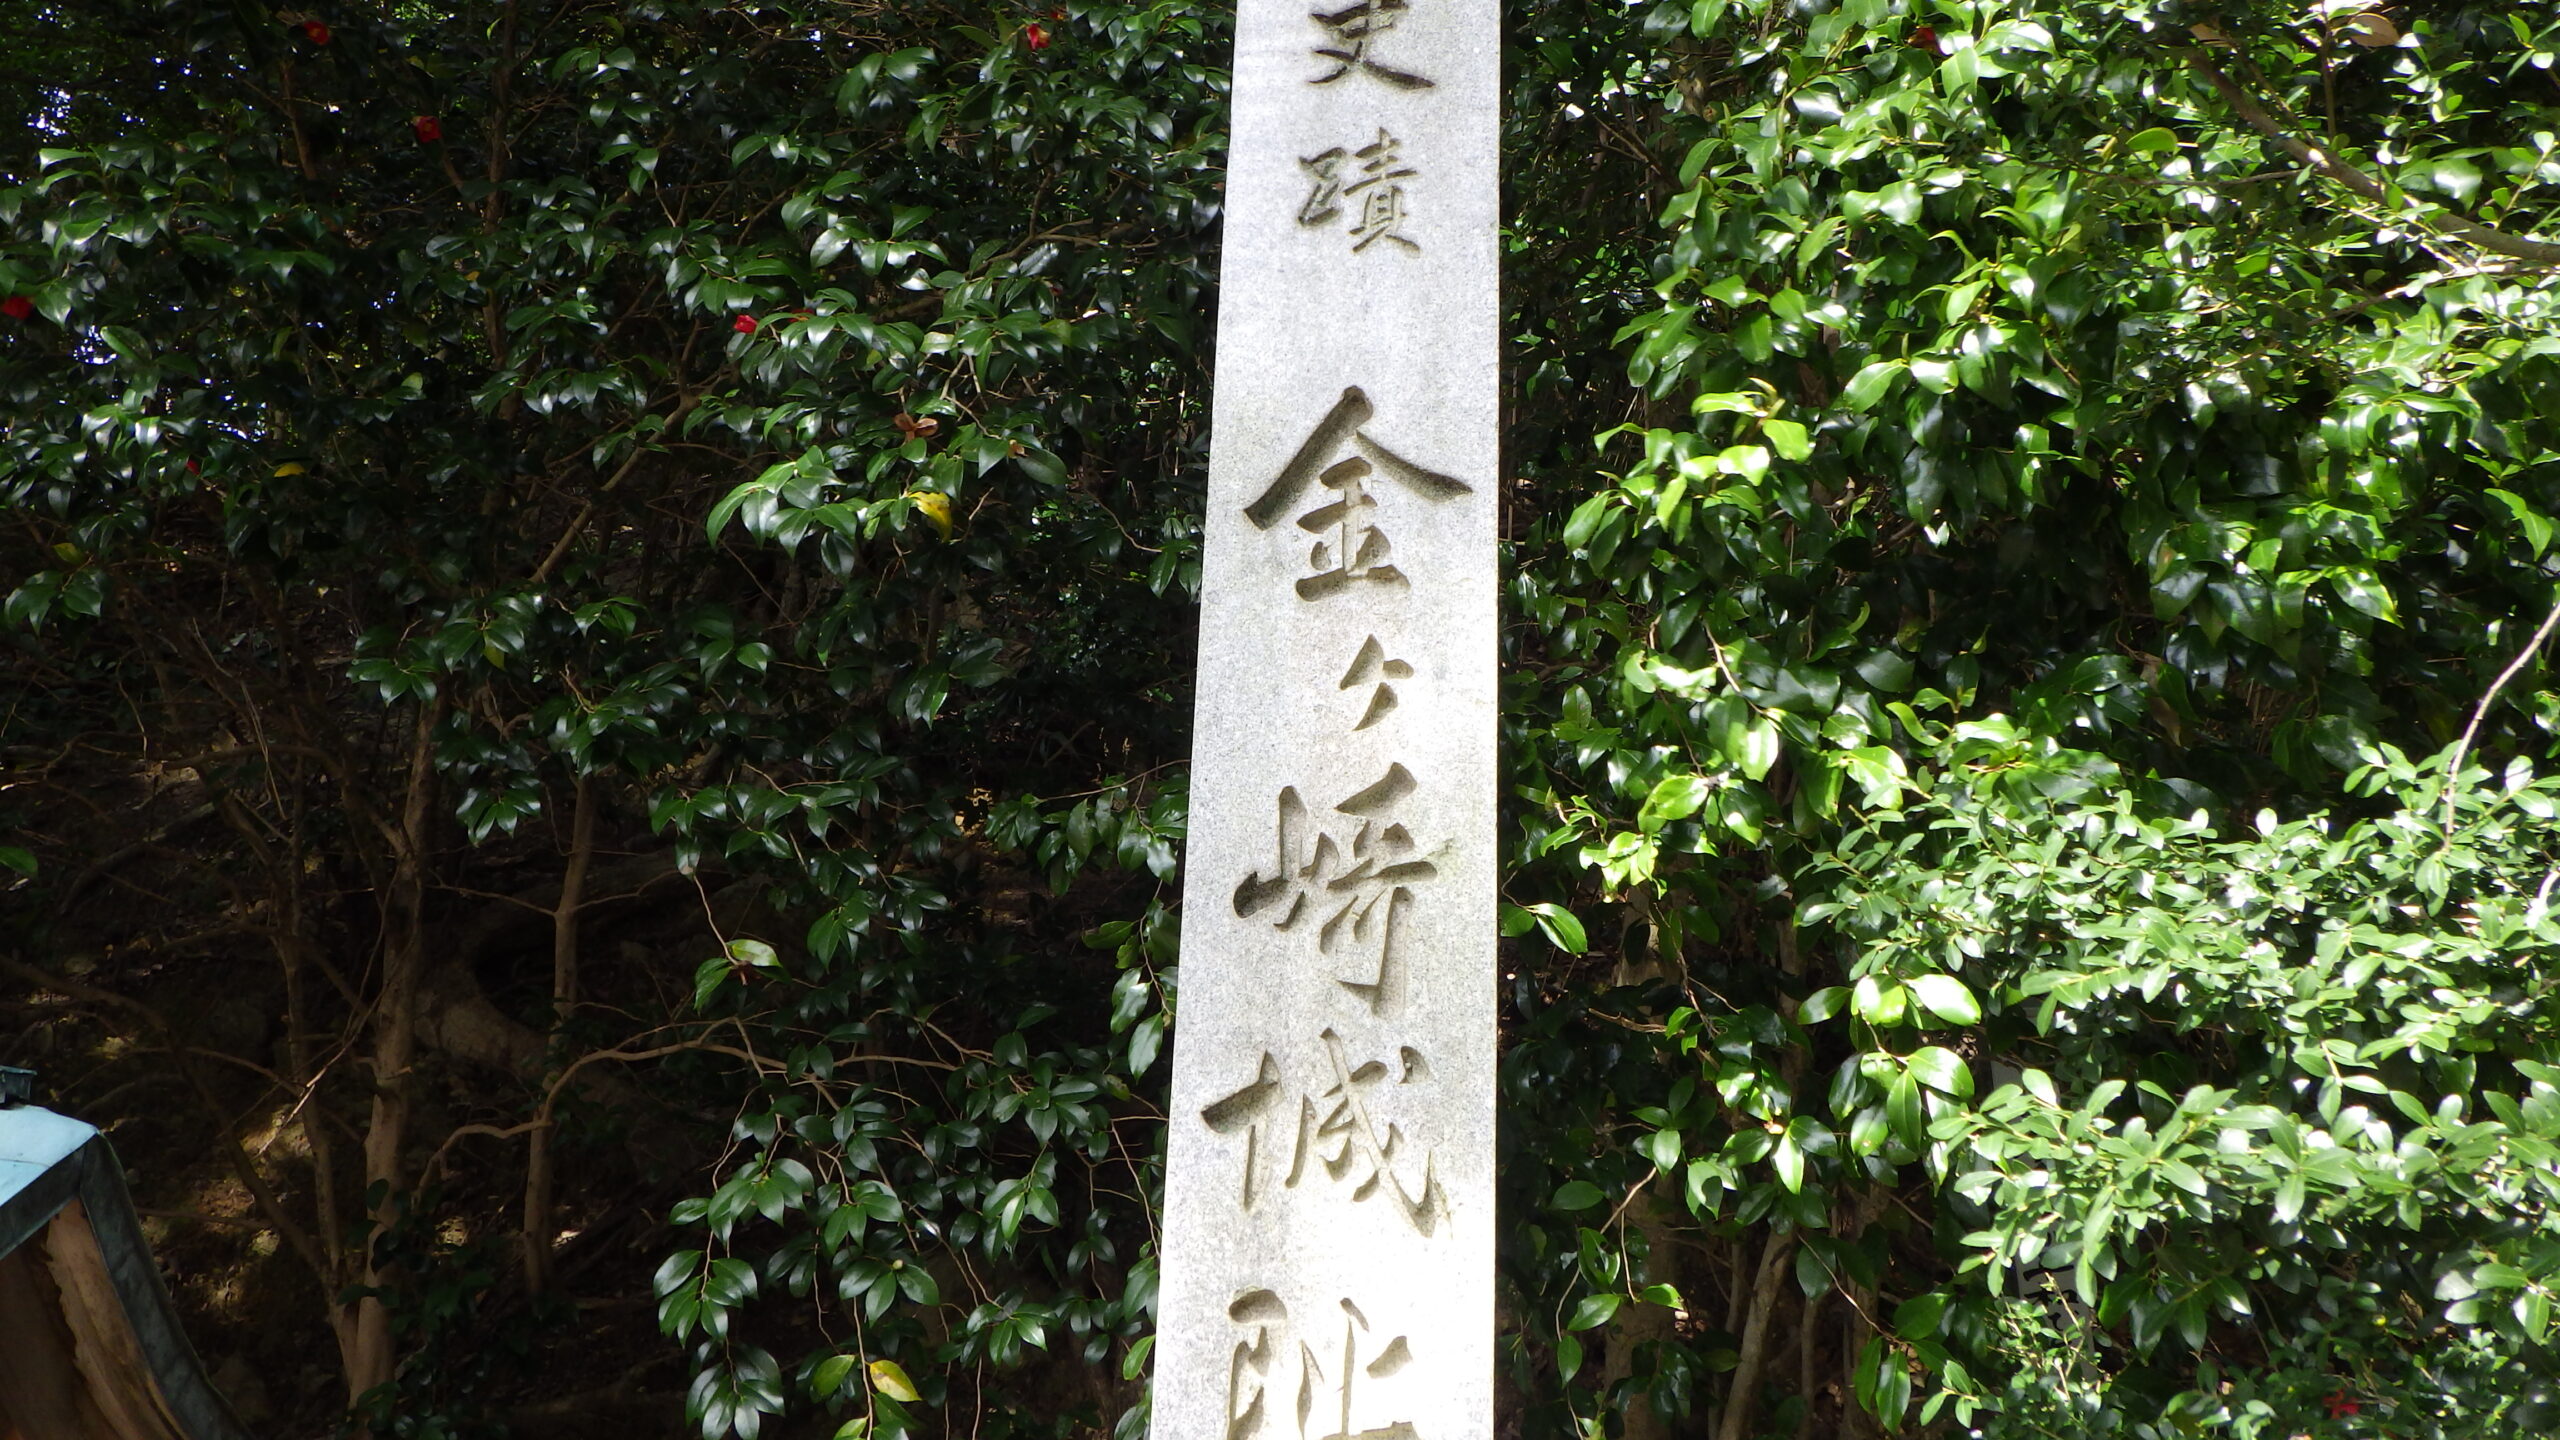 史蹟 金ヶ崎城阯